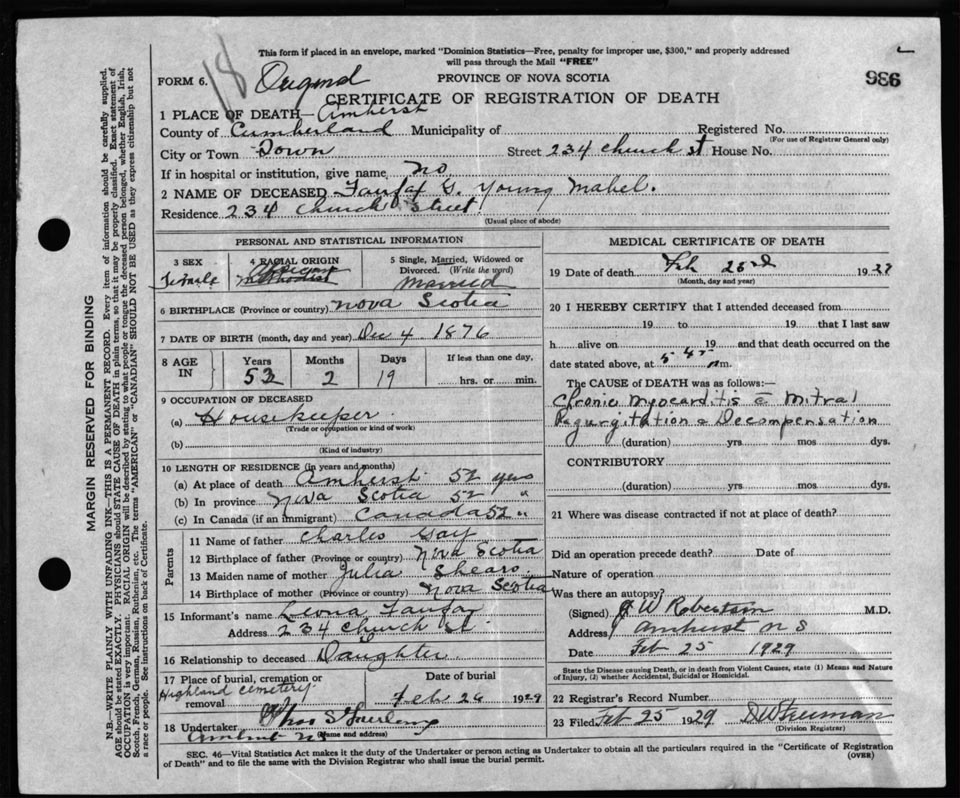 This form if placed in an envelope, marked "Dominion Statistics—Free, penalty for improper use, $300," and properly addressed
will pass through the Mail "FREE"
18
FORM 6.
Original
PROVINCE OF NOVA SCOTIA
986
CERTIFICATE OF REGISTRATION OF DEATH
1 PLACE OF DEATH— Amherst
County of Cumberland Municipality of Registered No.
(For use of Registrar General only)
City or Town Town Street 234 Church St House No.
If in hospital or institution, give name No
2 NAME OF DECEASED Fairfax G. Young Mabel.
Residence 234 Church Street
(Usual place of abode)
PERSONAL AND STATISTICAL INFORMATION
3 SEX
Female
4 RACIAL ORIGIN
African
Methodist
5 Single, Married, Widowed or
Divorced. (Write the word)
Married
6 BIRTHPLACE (Province or country) Nova Scotia
7 DATE OF BIRTH (month, day and year) Dec 4 1876
8 AGE
IN
Years Months Days If less than one day,
52 2 19 hrs. or min.
9 OCCUPATION OF DECEASED
(a) Housekeeper
(Trade or occupation or kind of work)
(b)
(Kind of industry)
10 LENGTH OF RESIDENCE (in years and months)
(a) At place of death Amherst 52 years
(b) In province Nova Scotia 52 "
(c) In Canada (if an immigrant) Canada 52 "
Parents
11 Name of father Charles Gay
12 Birthplace of father (Province or country) Nova Scotia
13 Maiden name of mother Julia Shears
14 Birthplace of mother (Province or country) Nova Scotia
15 Informant's name Leona Fairfax
Address 234 Church St.
16 Relationship to deceased Daughter
17 Place of burial, cremation or
removal
Highland Cemetery
Date of burial
Feb 26 1929
18 Undertaker
(Name and address)
Amherst NS
MEDICAL CERTIFICATE OF DEATH
19 Date of death Feb 23rd 1929
(Month, day and year)
20 I HEREBY CERTIFY that I attended deceased from
19 to 19 that I last saw
h alive on 19 and that death occurred on the
date stated above, at 5.45 m.
The CAUSE of DEATH was as follows:—
Chronic Myocarditis c Mitral
Regurgitation & Decompensation
(duration) yrs mos dys.
CONTRIBUTORY
(duration) yrs. mos dys.
21 Where was disease contracted if not at place of death?
Did an operation precede death? Date of
Nature of operation
Was there an autopsy?
(Signed) J W Robertson M.D.
Address Amherst N S
Date Feb 25 1929
State the Disease causing Death, or in death from Violent Causes, state (1) Means and Nature
of Injury, (2) whether Accidental, Suicidal or Homicidal.
22 Registrar's Record Number
23 Filed Feb 25 1929 D W Freeman
(Division Registrar)
SEC. 46—Vital Statistics Act makes it the duty of the Undertaker or person acting as Undertaker to obtain all the particulars required in the "Certificate of Registration
of Death" and to file the same with the Division Registrar who shall issue the burial permit.
(OVER)
MARGIN RESERVED FOR BINDING
N.B.—WRITE PLAINLY WITH UNFADING INK—THIS IS A PERMANENT RECORD. Every item of information should be carefully supplied.
AGE should be stated EXACTLY. PHYSICIANS should STATE CAUSE OF DEATH in plain terms, so that it may be properly classified. Exact statement of
OCCUPATION is very important. RACIAL ORIGIN will be described by stating to what people or tongue the deceased person belonged, whether English, Irish,
Scotch, French, German, Russian, Ruthenian, etc. The terms "AMERICAN" or "CANADIAN" SHOULD NOT BE USED as they express citizenship but not
a race or people. See instructions on back of Certificate.